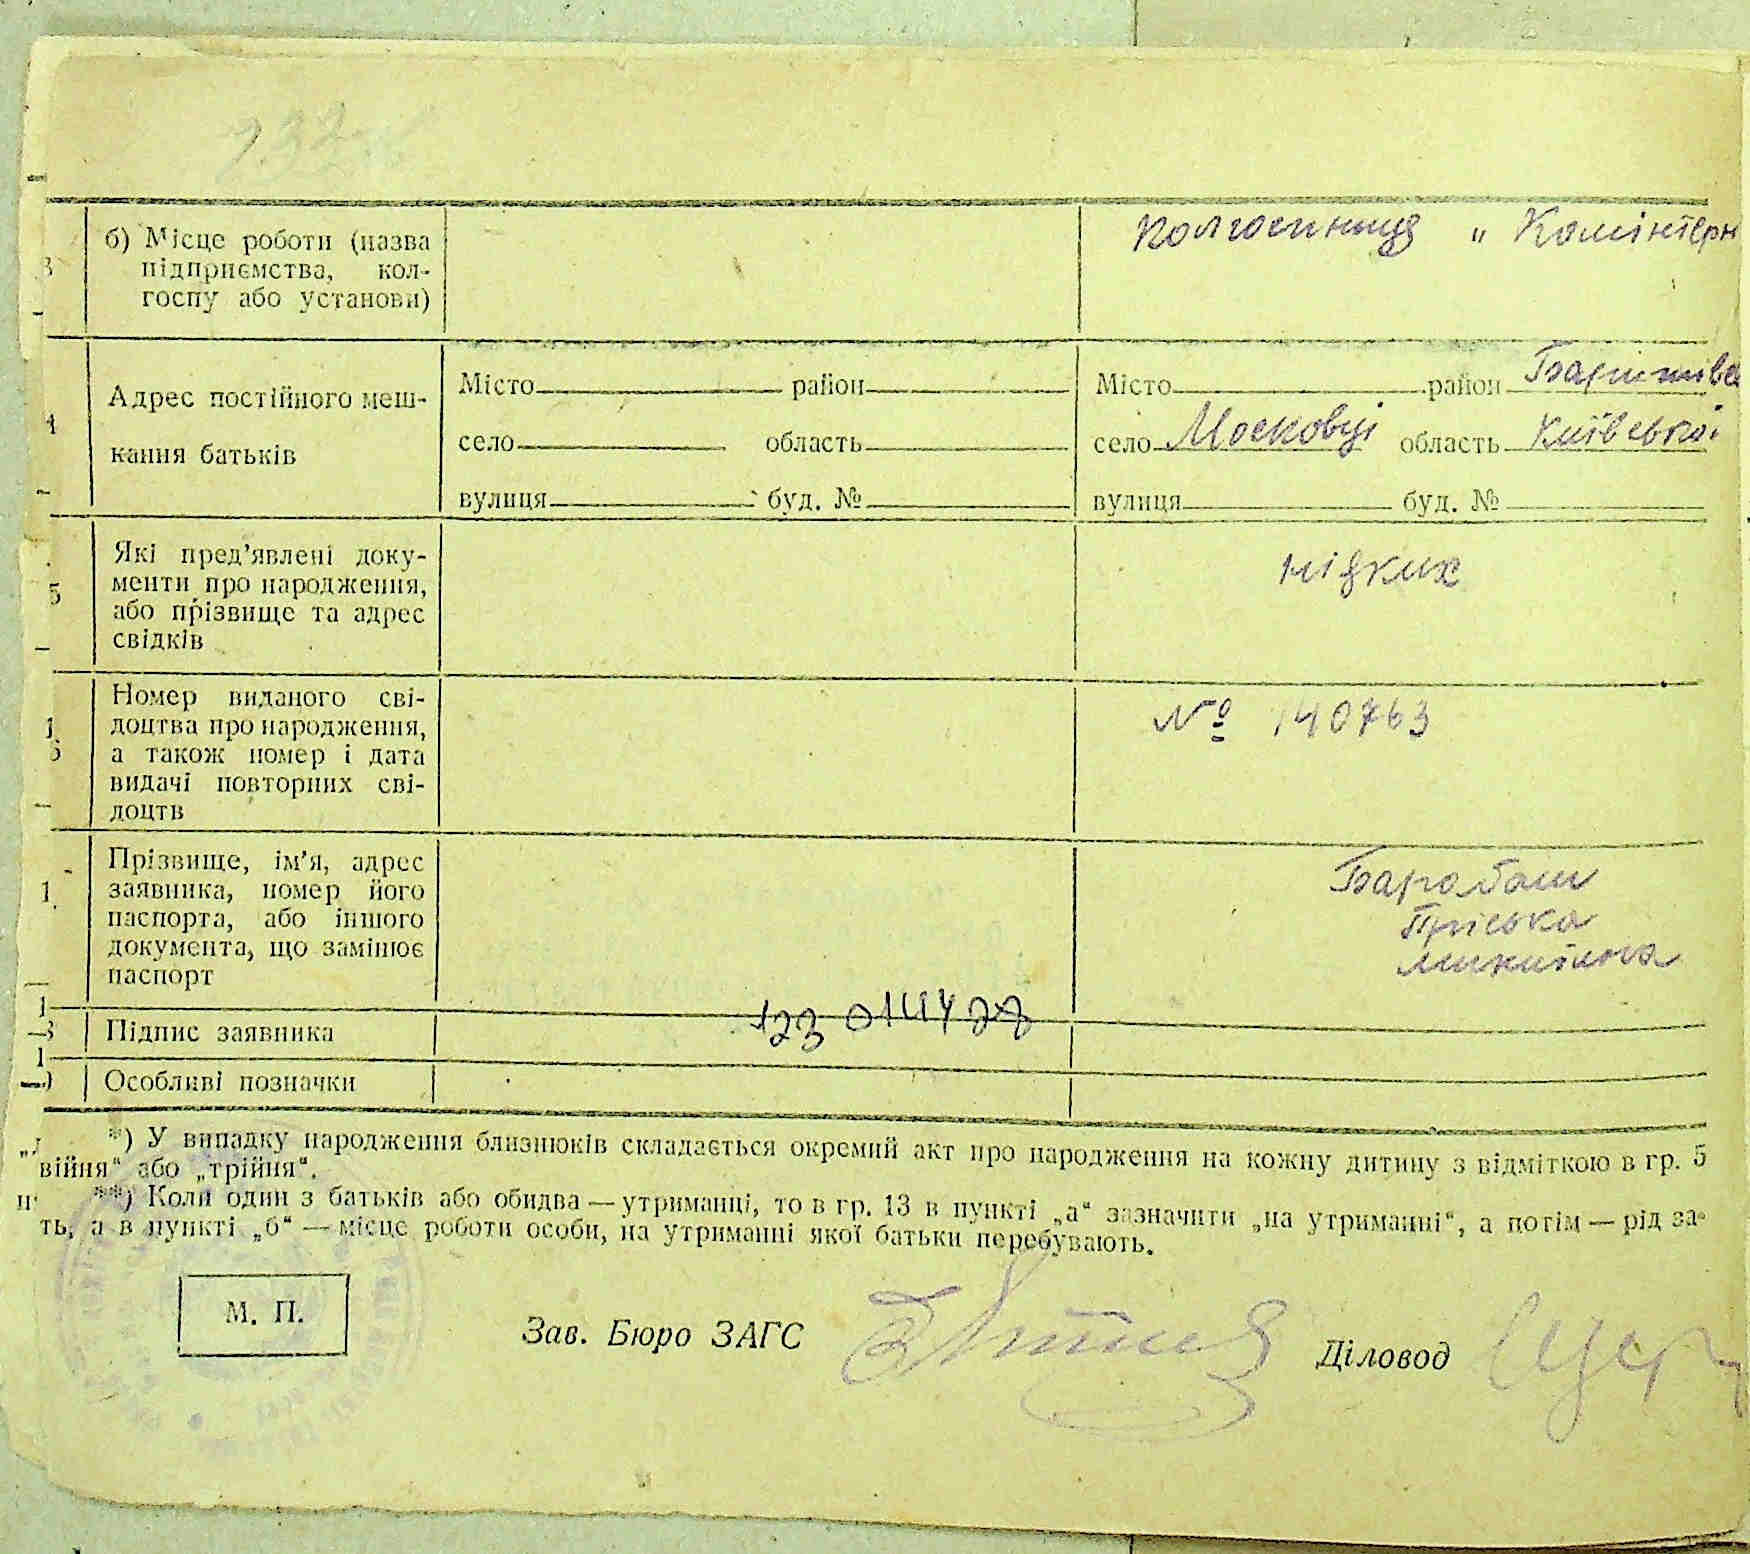 732
б) Місце роботи (назва
підприємства, кол-
госпу або установи)
колгоспниця „ Комінтерн
Адрес постійного меш-
кання батьків
Місто район
село область
вулиця буд. №
Місто район Баришівс
село Московці область Київської
вулиця буд. №
5
Які пред’явлені доку-
менти про народження,
або прізвище та адрес
свідків
ніяких
Номер виданого сві-
доцтва про народження,
а також номер і дата
видачі повторних сві-
доцтв
№ 140763
Прізвище, ім’я, адрес
заявника, номер його
паспорта, або іншого
документа, що замінює
паспорт
Барабаш
Пріська
Підпис заявника
Особливі позначки
*) У випадку народження близнюків складається окремий акт про народження на кожну дитину з відміткою в гр. 5
війня“ або „трійня“.
**) Коли один з батьків або обидва — утриманці, то в гр. 13 в пункті „а“ зазначити „на утриманні“, а потім — рід за-
ть, а в пункті „б“ — місце роботи особи, на утриманні якої батьки перебувають.
М. П.
Зав. Бюро ЗАГС
Діловод